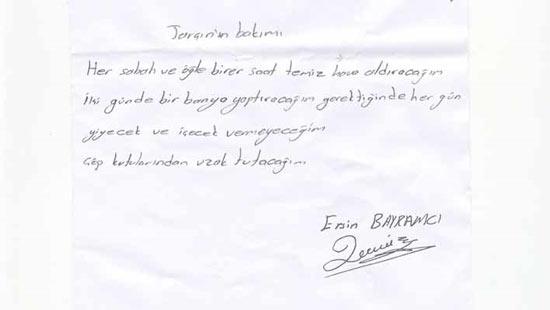 Tarçın'ın bakımı
Her sabah ve öğle birer saat temiz hava aldıracağım
İki günde bir banyo yaptıracağım gerektiğinde her gün
yiyecek ve içecek vermeyeceğim
Çöp kutularından uzak tutacağım
Ersin BAYRAMCI